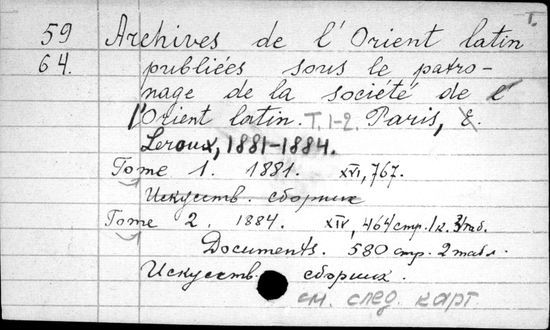 т.
59 Archives de l'Orient latin
64. publiées sous le patro-
nage de la société de l'
l'Orient latin. T. 1-2. Paris, E.
Leroux, 1881-1884.
Tome 1. 1881. XVI, 767.
Искусств. сборник
Tome 2. 1884. XIV, 464 стр. 1 к. 3 таб.
Documents. 580 стр. 2 табл.
Искусств. сборник.
см. след. карт.